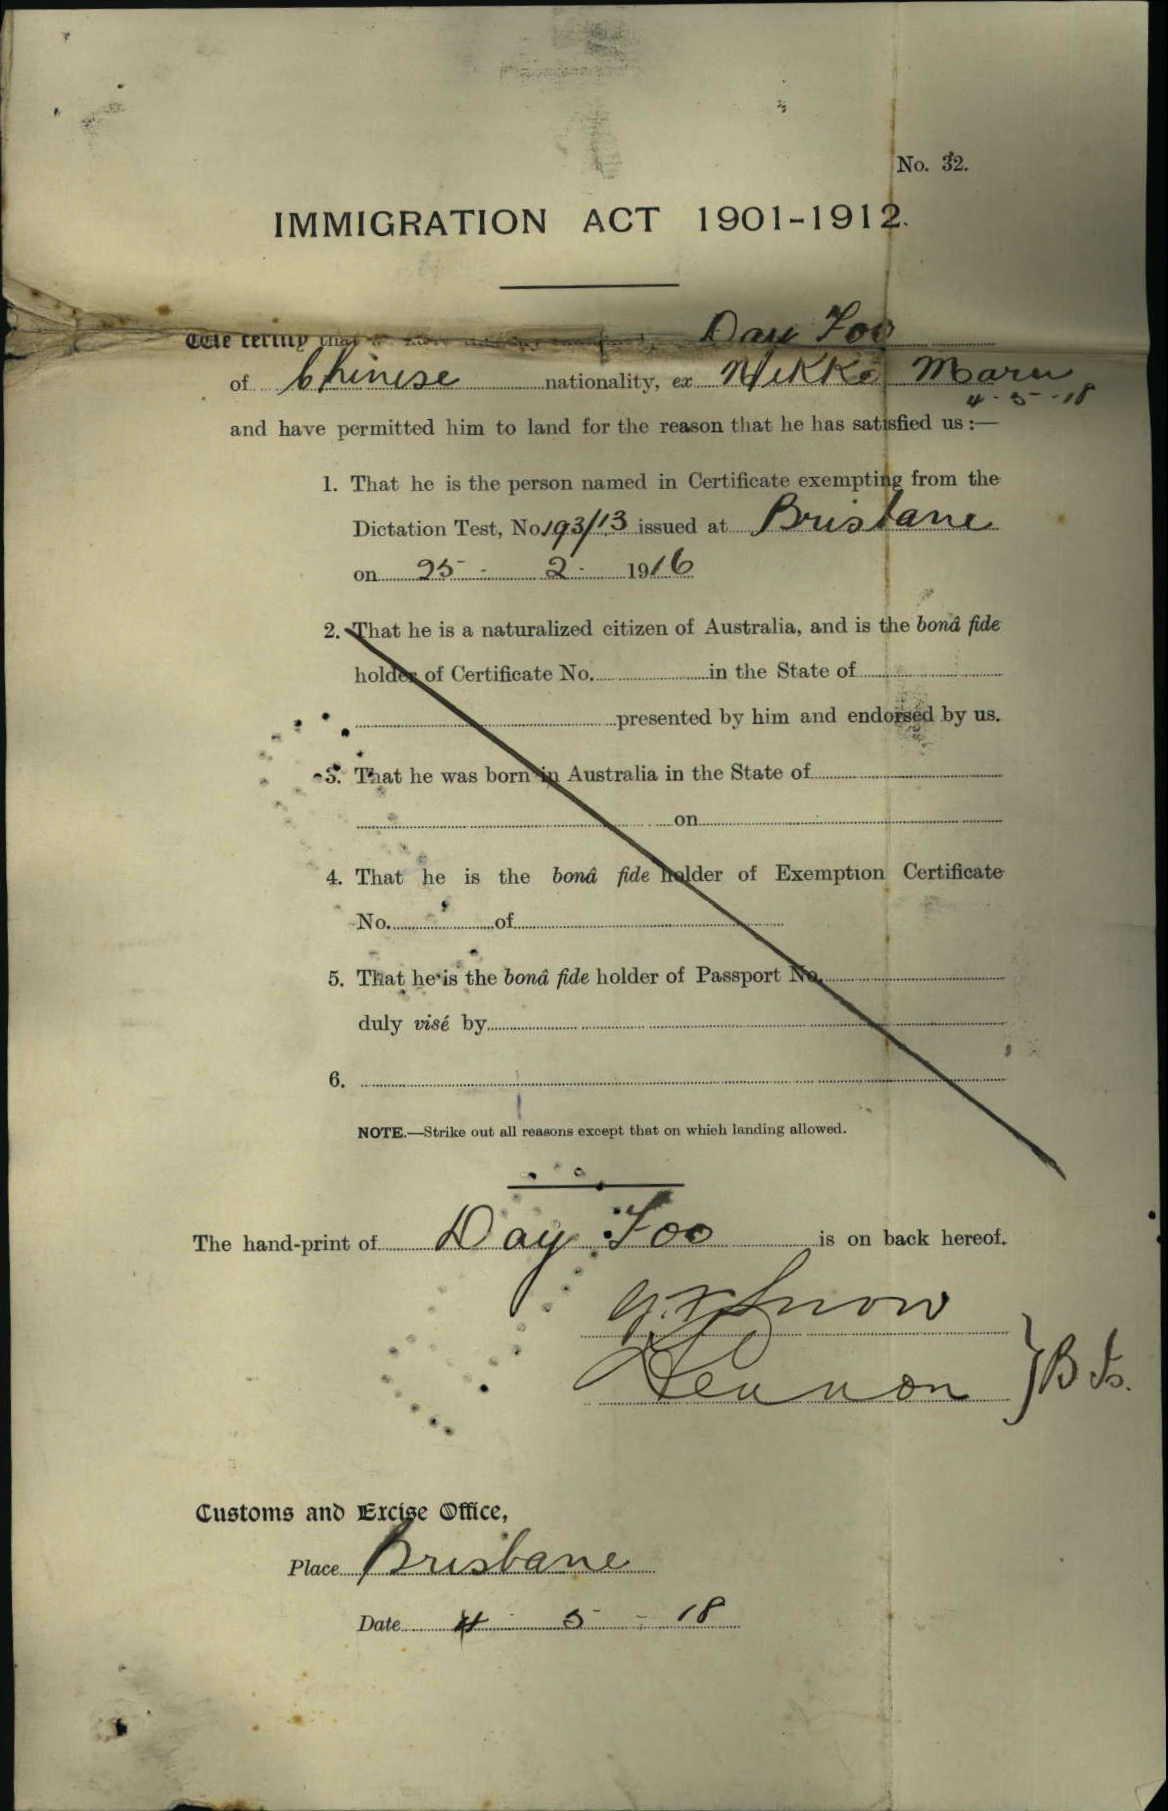 No. 32.
IMMIGRATION ACT 1901-1912.
We certify that Day Foo
of Chinese nationality, ex Nikko Maru
4-5-18
and have permitted him to land for the reason that he has satisfied us:—
1. That he is the person named in Certificate exempting from the
Dictation Test, No. 193/13 issued at Brisbane
on 25 - 2 - 1916
2. That he is a naturalized citizen of Australia, and is the bonâ fide
holder of Certificate No. in the State of
presented by him and endorsed by us.
3. That he was born in Australia in the State of
on
4. That he is the bonâ fide holder of Exemption Certificate
No. of
5. That he is the bonâ fide holder of Passport No.
duly visé by
6.
NOTE.—Strike out all reasons except that on which landing allowed.
The hand-print of Day Foo is on back hereof.
Snow
Lennon
Customs and Excise Office,
Place Brisbane
Date 4 - 5 - 18